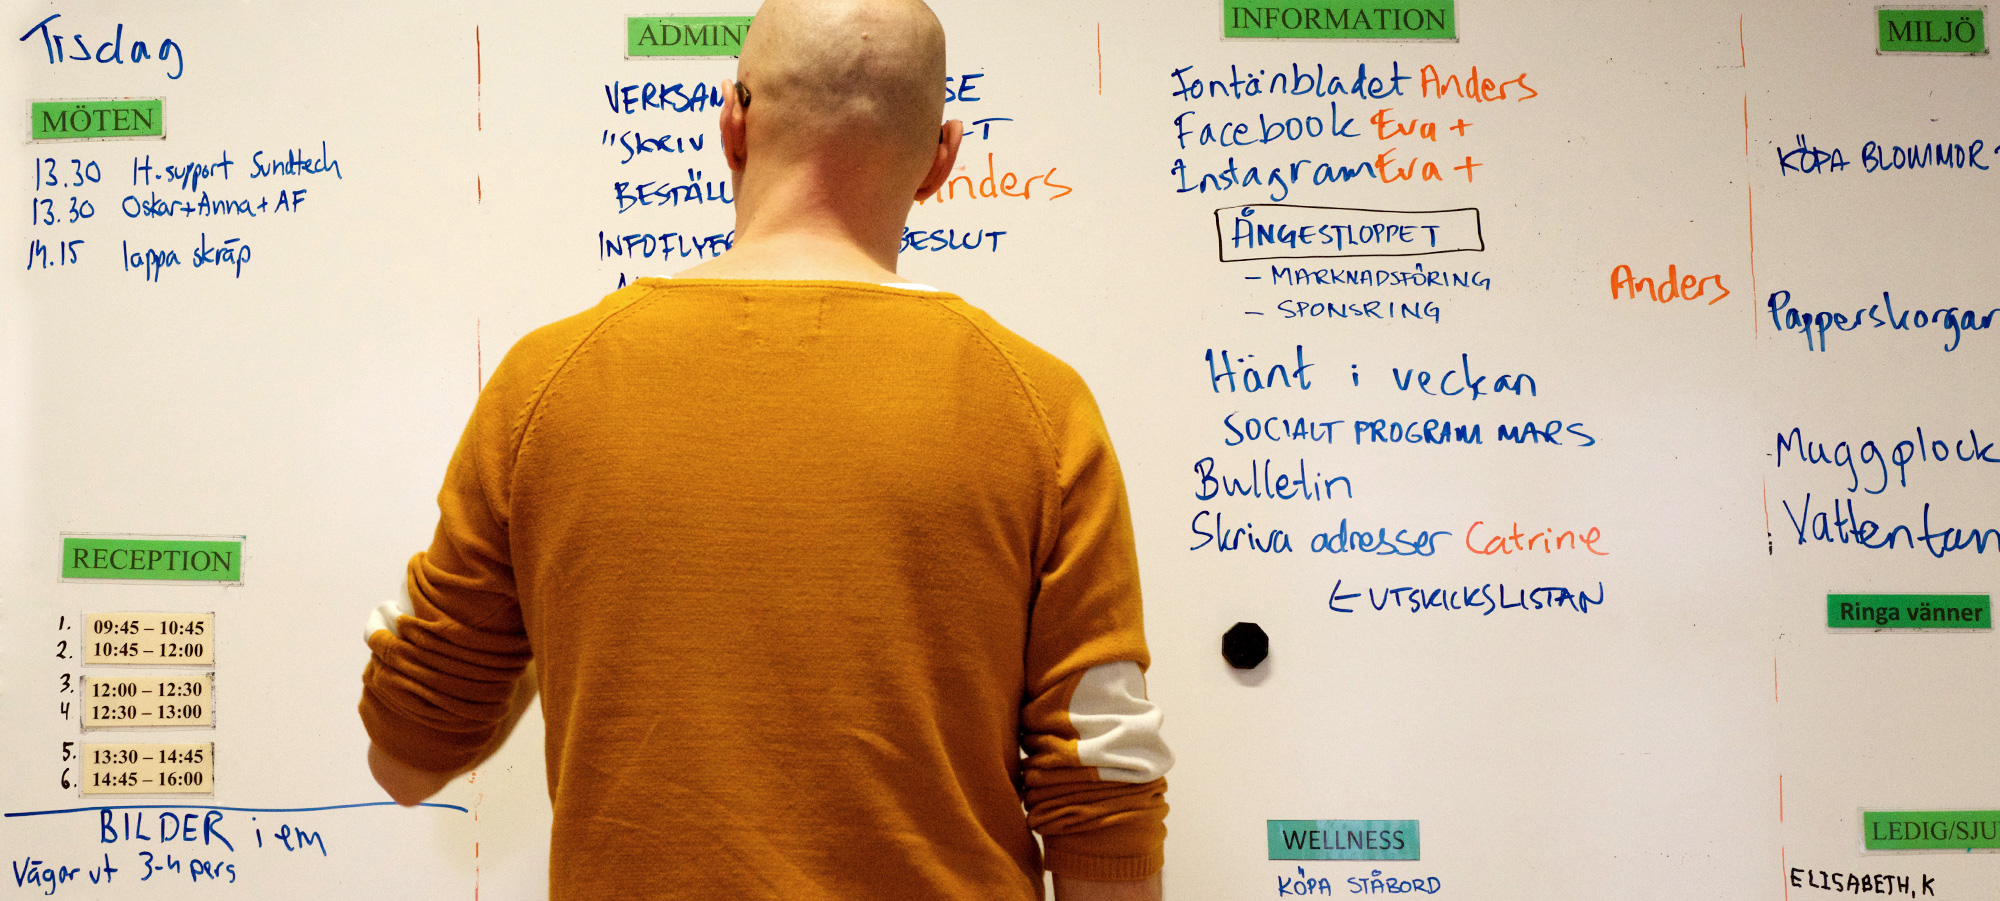 Tisdag
MÖTEN
13.30 It-support Sundtech
13.30 Oskar+Anna+AF
14.15 lappa skräp
RECEPTION
1. 09:45 – 10:45
2. 10:45 – 12:00
3. 12:00 – 12:30
4 12:30 – 13:00
5. 13:30 – 14:45
6. 14:45 – 16:00
BILDER i em
Vågar ut 3-4 pers
ADMINI
VERKSAM SE
"SKRIV T
BESTÄLL Anders
INFOFLYER BESLUT
INFORMATION
Fontänbladet Anders
Facebook Eva +
Instagram Eva +
ÅNGESTLOPPET
– MARKNADSFÖRING
Anders
– SPONSRING
Hänt i veckan
SOCIALT PROGRAM MARS
Bulletin
Skriva adresser Catrine
← UTSKICKSLISTAN
WELLNESS
KÖPA STÅBORD
MILJÖ
KÖPA BLOMMOR
Papperskorgar
Muggplock
Vatten
Ringa vänner
LEDIG/SJU
ELISABETH, K